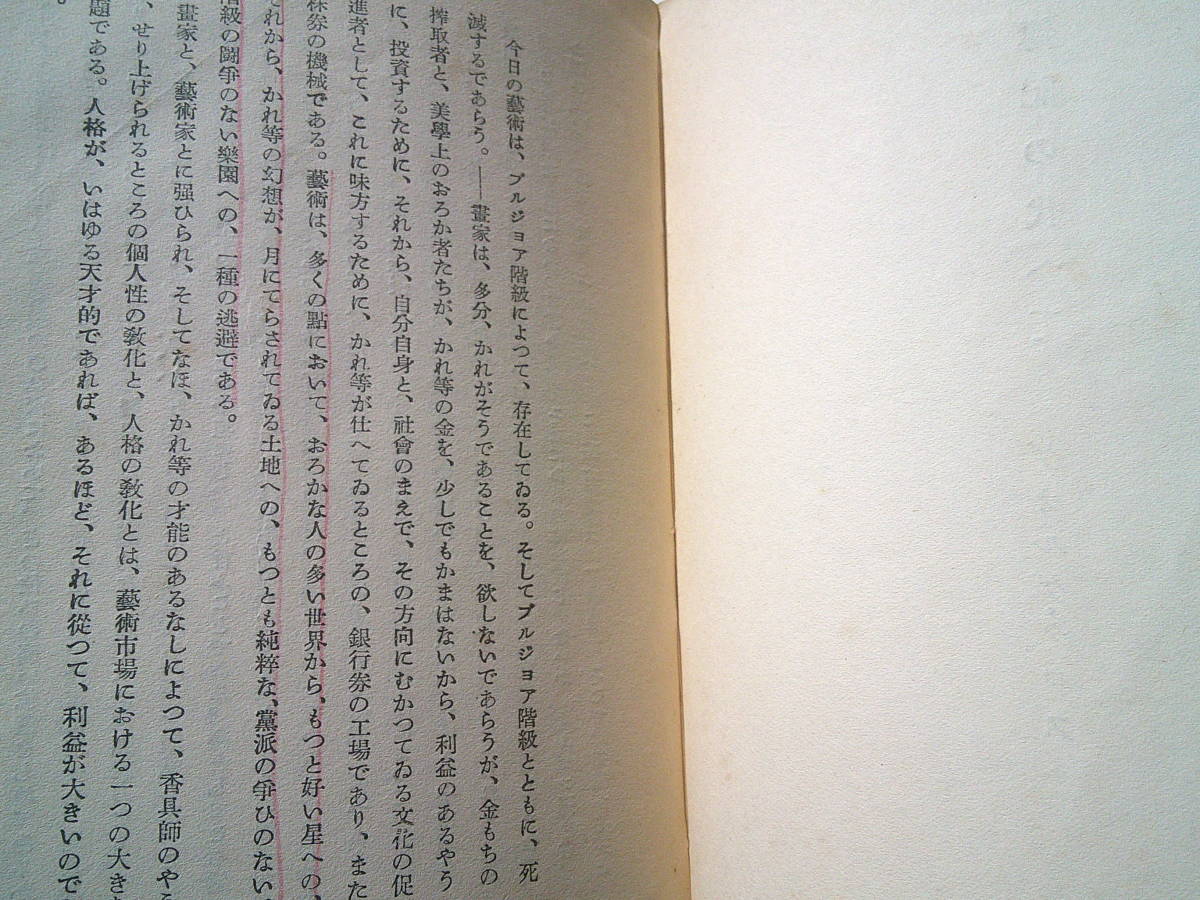 今日の藝術は、ブルジョア階級によつて、存在してゐる。そしてブルジョア階級とともに、死
滅するであらう。――畫家は、多分、かれがそうであることを、欲しないであらうが、金もちの
搾取者と、美學上のおろか者たちが、かれ等の金を、少しでもかまはないから、利益のあるやう
に、投資するために、それから、自分自身と、社會のまえで、その方向にむかつてゐる文化の促
進者として、これに味方するために、かれ等が仕へてゐるところの、銀行券の工場であり、また
株券の機械である。藝術は、多くの點において、おろかな人の多い世界から、もつと好い星への、
それから、かれ等の幻想が、月にてらされてゐる土地への、もつとも純粹な、黨派の爭ひのない、
階級の闘争のない樂園への、一種の逃避である。
畫家と、藝術家とに强ひられ、そしてなほ、かれ等の才能のあるなしによつて、香具師のや
、せり上げられるところの個人性の敎化と、人格の敎化とは、藝術市場における一つの大き
題である。人格が、いはゆる天才的であれば、あるほど、それに從つて、利益が大きいので
。